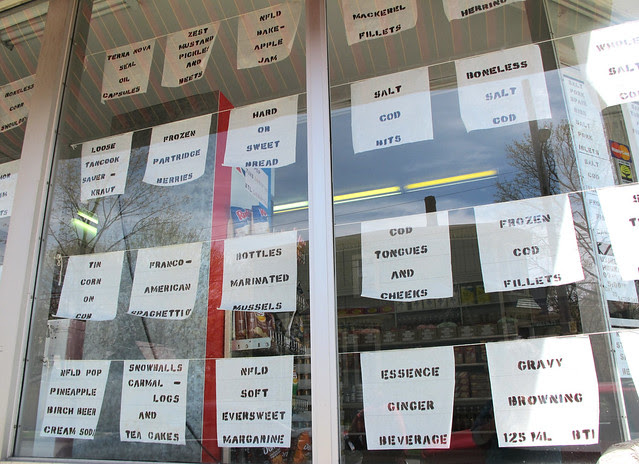 TERRA NOVA
SEAL
OIL
CAPSULES
ZEST
MUSTARD
PICKLES
AND
BEETS
NFLD
BAKE-
APPLE
JAM
MACKEREL
FILLETS
HERRING
BONELESS
CORN
LOOSE
TANCOOK
SAUER-
KRAUT
FROZEN
PARTRIDGE
BERRIES
HARD
OR
SWEET
BREAD
SALT
COD
BITS
BONELESS
SALT
COD
WHOLE
SALT
COD
TIN
CORN
ON
FRANCO-
AMERICAN
SPAGHETTIO
BOTTLES
MARINATED
MUSSELS
COD
TONGUES
AND
CHEEKS
FROZEN
COD
FILLETS
NFLD POP
PINEAPPLE
BIRCH BEER
CREAM SODA
SNOWBALLS
CARMAL -
LOGS
AND
TEA CAKES
NFLD
SOFT
EVERSWEET
MARGARINE
ESSENCE
GINGER
BEVERAGE
GRAVY
BROWNING
125 ML BTL